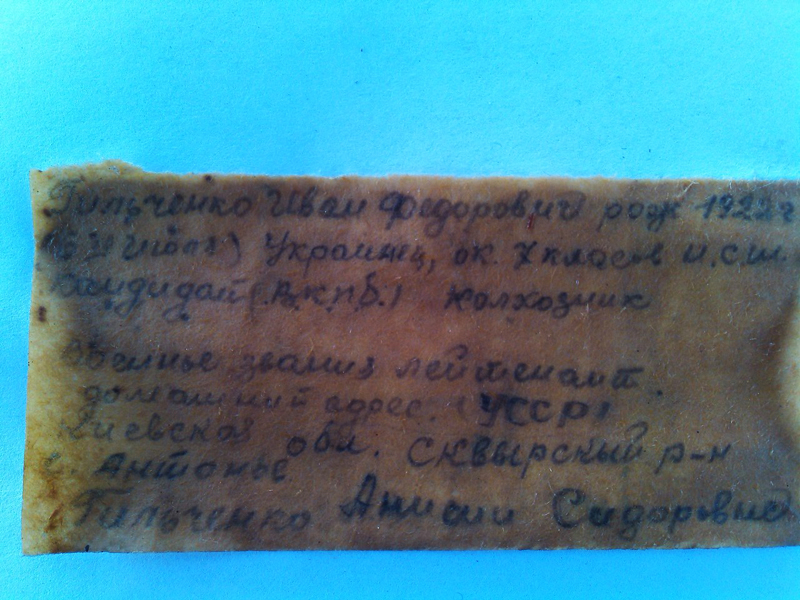 Гильченко Иван Федорович рож 1922г
Июля) Украинец, ок. 7 класов н.с.ш.
Кандидат (В.К.П.б.) колхозник
Военные звание лейтенант.
домашний адрес. (УССР)
Киевской обл. Сквырский р-н
с. Антонье
Гильченко Анисии Сидоровна